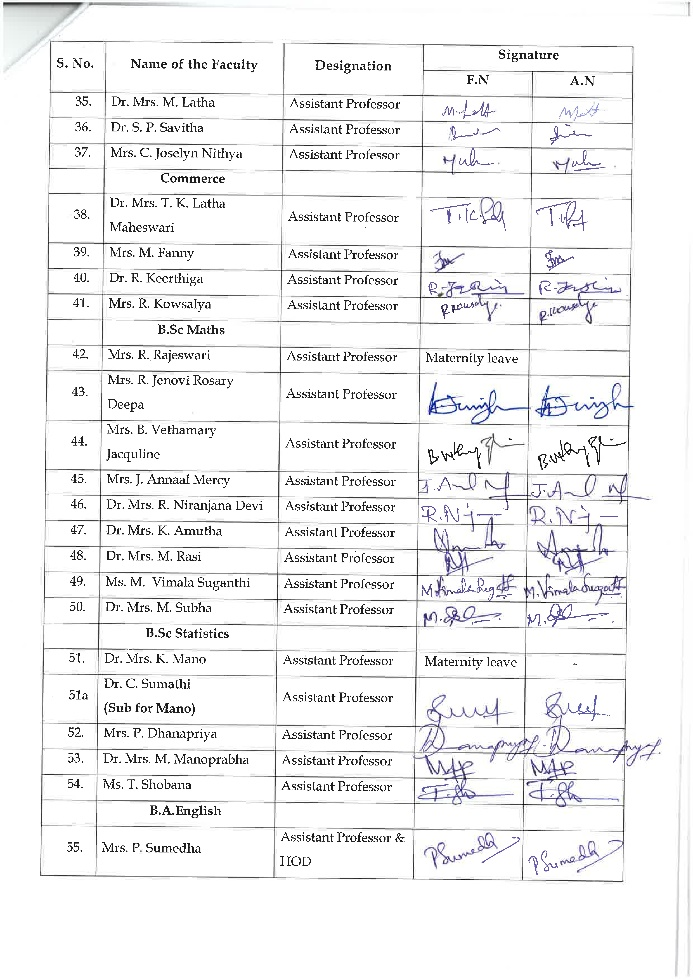 S. No. Name of the Faculty Designation Signature
F.N A.N
35. Dr. Mrs. M. Latha Assistant Professor
36. Dr. S. P. Savitha Assistant Professor
37. Mrs. C. Joselyn Nithya Assistant Professor
Commerce
38. Dr. Mrs. T. K. Latha Assistant Professor
Maheswari
39. Mrs. M. Fanny Assistant Professor
40. Dr. R. Keerthiga Assistant Professor
41. Mrs. R. Kowsalya Assistant Professor
B.Sc Maths
42. Mrs. R. Rajeswari Assistant Professor Maternity leave
43. Mrs. R. Jenovi Rosary Assistant Professor
Deepa
44. Mrs. B. Vethamary Assistant Professor
Jacquline
45. Mrs. J. Annaaf Mercy Assistant Professor
46. Dr. Mrs. R. Niranjana Devi Assistant Professor
47. Dr. Mrs. K. Amutha Assistant Professor
48. Dr. Mrs. M. Rasi Assistant Professor
49. Ms. M. Vimala Suganthi Assistant Professor
50. Dr. Mrs. M. Subha Assistant Professor
B.Sc Statistics
51. Dr. Mrs. K. Mano Assistant Professor Maternity leave -
51a Dr. C. Sumathi Assistant Professor
(Sub for Mano)
52. Mrs. P. Dhanapriya Assistant Professor
53. Dr. Mrs. M. Manoprabha Assistant Professor
54. Ms. T. Shobana Assistant Professor
B.A.English
55. Mrs. P. Sumedha Assistant Professor & P Sumedha P Sumedha
HOD